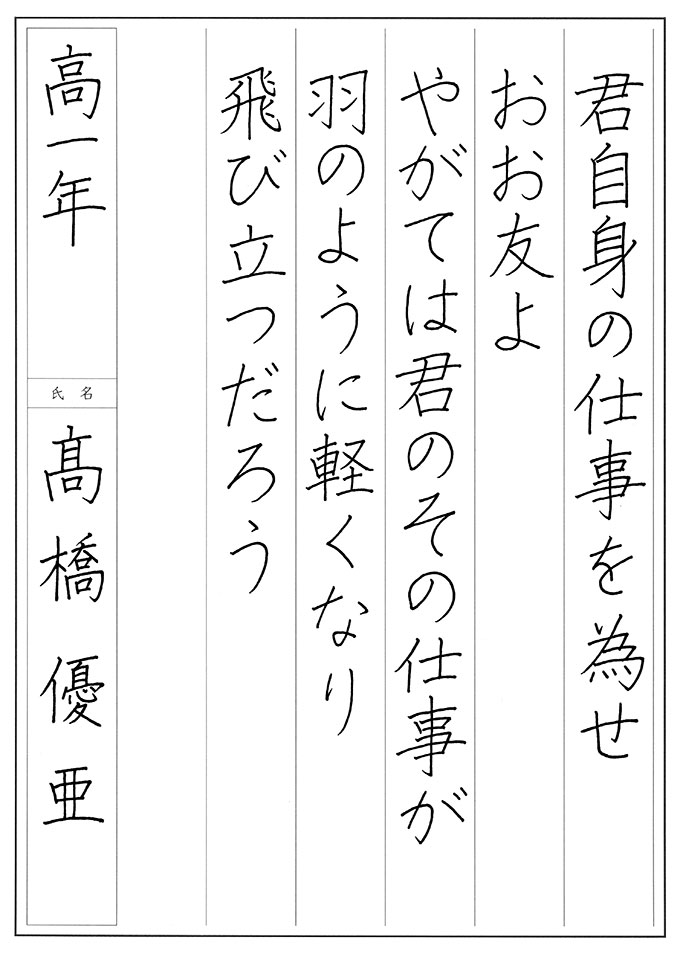 君自身の仕事を為せ
おお友よ
やがては君のその仕事が
羽のように軽くなり
飛び立つだろう
高一年
氏名
髙橋優亜